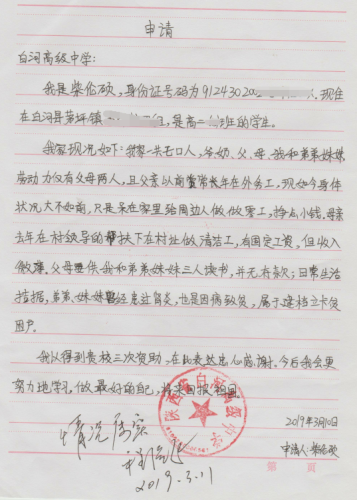 申请
白河高级中学:
我是柴伦硕,身份证号码为9124302 人,现住
在白河县茅坪镇 ,是高二 班的学生。
我家现况如下:我家一共七口人,爷奶、父、母、我和弟弟妹妹
劳动力仅有父母两人,且父亲以前常年在外务工,现如今身体
状况大不如前,只是呆在家里给周边人做做零工,挣点小钱。母亲
去年在村领导的帮扶下在村业做清洁工,有固定工资,但收入
微薄。父母要供我和弟弟妹妹三人读书,并无存款;日常生活
拮据,弟弟、妹妹曾经患过肾炎,也是因病致贫,属于建档立卡贫
困户。
我以得到贵校三次资助,在此表达忠心感谢。今后我会更
努力地学习,做最好的自己,将来回报祖国
2019年3月10日
申请人:柴伦硕
情况属实
2019.3.11
陕西省白河高级中学
第 页